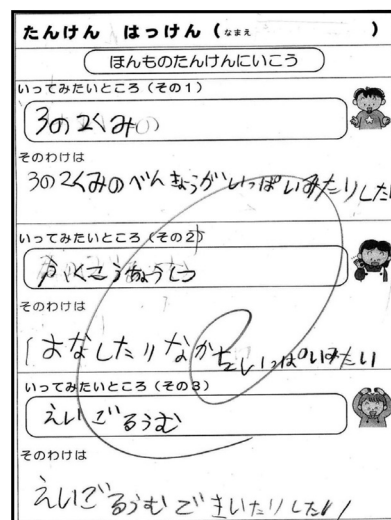 たんけん はっけん (なまえ )
ほんものたんけんにいこう
いってみたいところ(その1)
3の2くみの
そのわけは
3の2くみのべんきょうがいっぱいみたりしたい
いってみたいところ(その2)
そのわけは
はなしたりなか いっぱいみたい
いってみたいところ(その3)
えいごるうむ
そのわけは
えいごるうむできいたりしたい